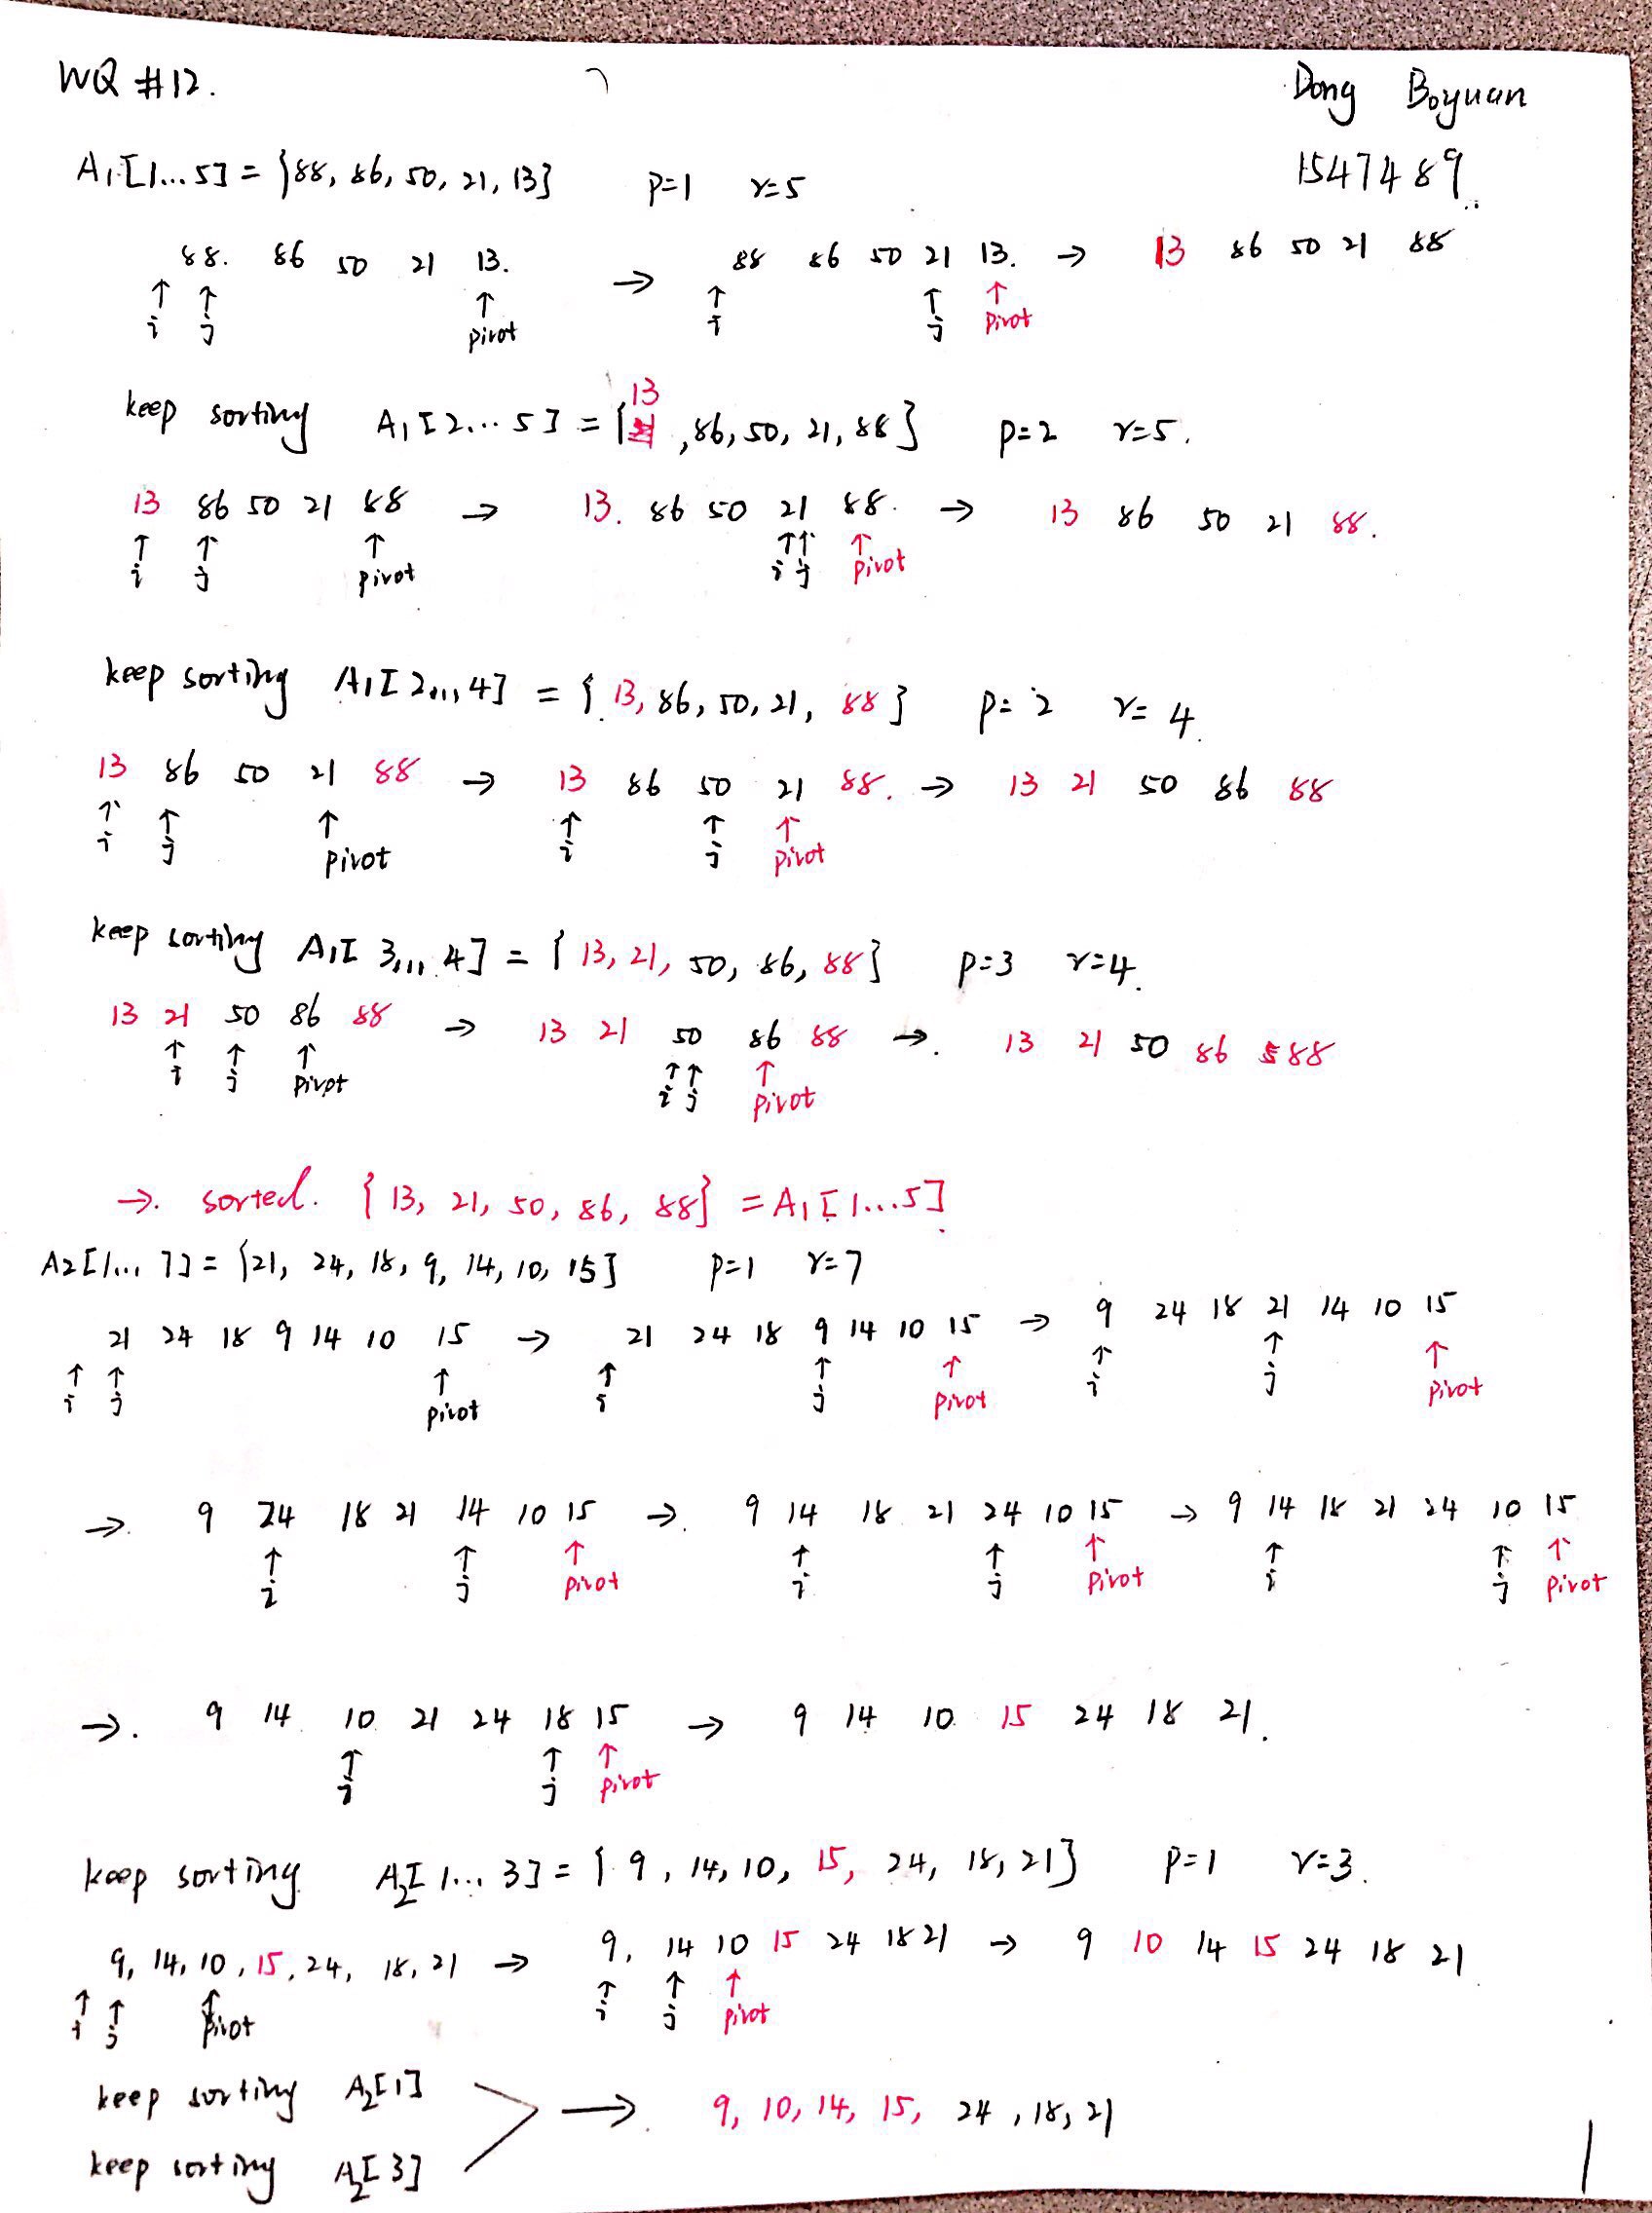 WQ #12. Dong Boyuan
1547489
A1[1...5] = {88, 86, 50, 21, 13} p=1 r=5
88. 86 50 21 13. → 88 86 50 21 13. → 13 86 50 21 88
↑ ↑ ↑ ↑ ↑ ↑
i j pivot i j pivot
13
keep sorting A1[2...5] = { , 86, 50, 21, 88} p=2 r=5.
13 86 50 21 88 → 13. 86 50 21 88. → 13 86 50 21 88.
↑ ↑ ↑ ↑↑ ↑
i j pivot i j pivot
keep sorting A1[2...4] = {13, 86, 50, 21, 88} p=2 r=4.
13 86 50 21 88 → 13 86 50 21 88. → 13 21 50 86 88
↑ ↑ ↑ ↑ ↑ ↑
i j pivot i j pivot
keep sorting A1[3...4] = {13, 21, 50, 86, 88} p=3 r=4.
13 21 50 86 88 → 13 21 50 86 88 →. 13 21 50 86 88
↑ ↑ ↑ ↑↑ ↑
i j pivot i j pivot
→. sorted. {13, 21, 50, 86, 88} = A1[1...5]
A2[1...7] = {21, 24, 18, 9, 14, 10, 15} p=1 r=7
21 24 18 9 14 10 15 → 21 24 18 9 14 10 15 → 9 24 18 21 14 10 15
↑ ↑ ↑ ↑ ↑ ↑ ↑ ↑ ↑
i j pivot i j pivot i j pivot
→. 9 24 18 21 14 10 15 →. 9 14 18 21 24 10 15 → 9 14 18 21 24 10 15
↑ ↑ ↑ ↑ ↑ ↑ ↑ ↑ ↑
i j pivot i j pivot i j pivot
→. 9 14 10 21 24 18 15 → 9 14 10 15 24 18 21.
↑ ↑ ↑
i j pivot
keep sorting A2[1...3] = {9, 14, 10, 15, 24, 18, 21} p=1 r=3.
9, 14, 10, 15, 24, 18, 21 → 9, 14 10 15 24 18 21 → 9 10 14 15 24 18 21
↑ ↑ ↑ ↑ ↑ ↑
i j pivot i j pivot
keep sorting A2[1]
→. 9, 10, 14, 15, 24, 18, 21
keep sorting A2[3]
1